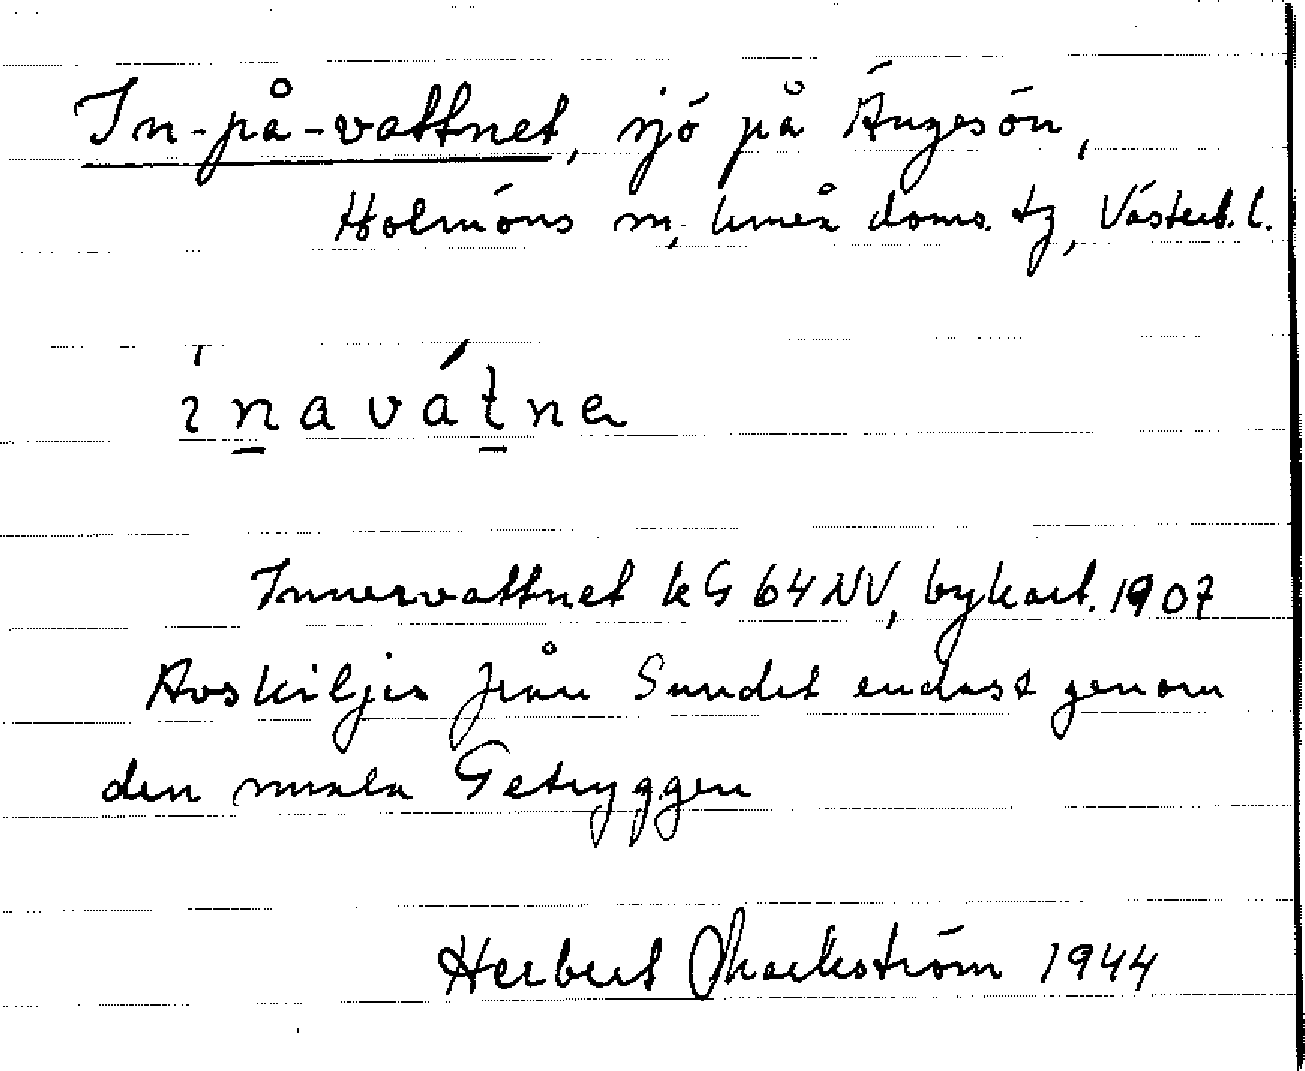 In-på-vattnet, sjö på Ängesön,
Holmöns sn, Umeå doms. tg, Västerb. l.
ɩnavátnɐ
Innervattnet kG 64 NV, bykart. 1907
Avskiljes från Sundet endast genom
den smala Getryggen
Herbert Markström 1944